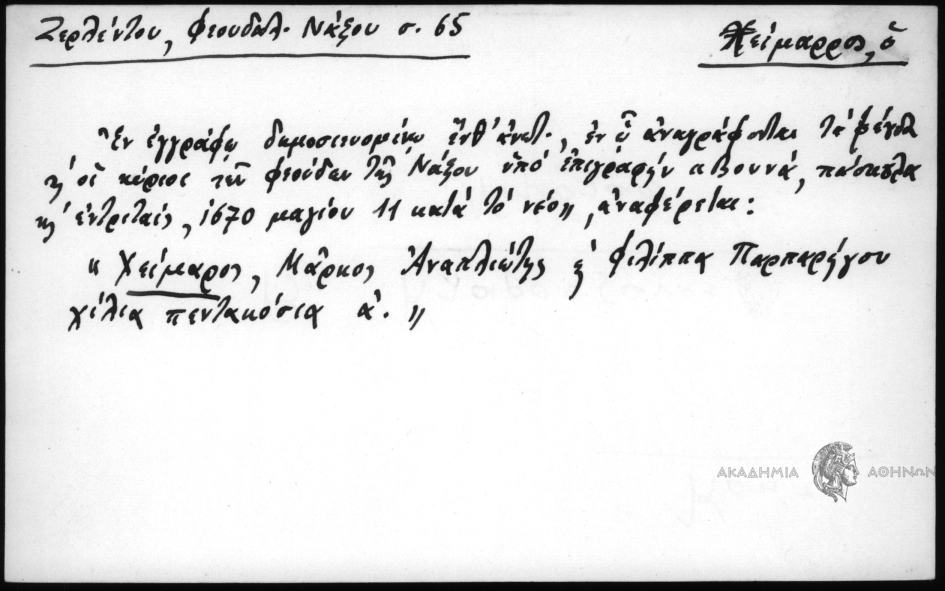 Ζερλέντου, Φεουδαλ. Νάξου σ. 65
Χείμαρρος, ὁ
Ἐν ἐγγράφῳ δημοσιευομένῳ ἔνθ' ἀνωτ., ἐν ᾧ ἀναγράφονται τὰ φέγουδα
κ' οἱ κύριοι τῶν φεούδων τῆς Νάξου ὑπὸ ἐπιγραφὴν «Βουνά, πάσκουλα
κ' ἐντριταίς, 1670 μαγίου 11 κατὰ τὸ νέο», ἀναφέρεται:
« Χείμαρος, Μᾶρκος Ἀναπλιώτης ἐ Φιλίππα Παρπαρήγου
χίλια πεντακόσια ἀ. »
ΑΚΑΔΗΜΙΑ ΑΘΗΝΩΝ